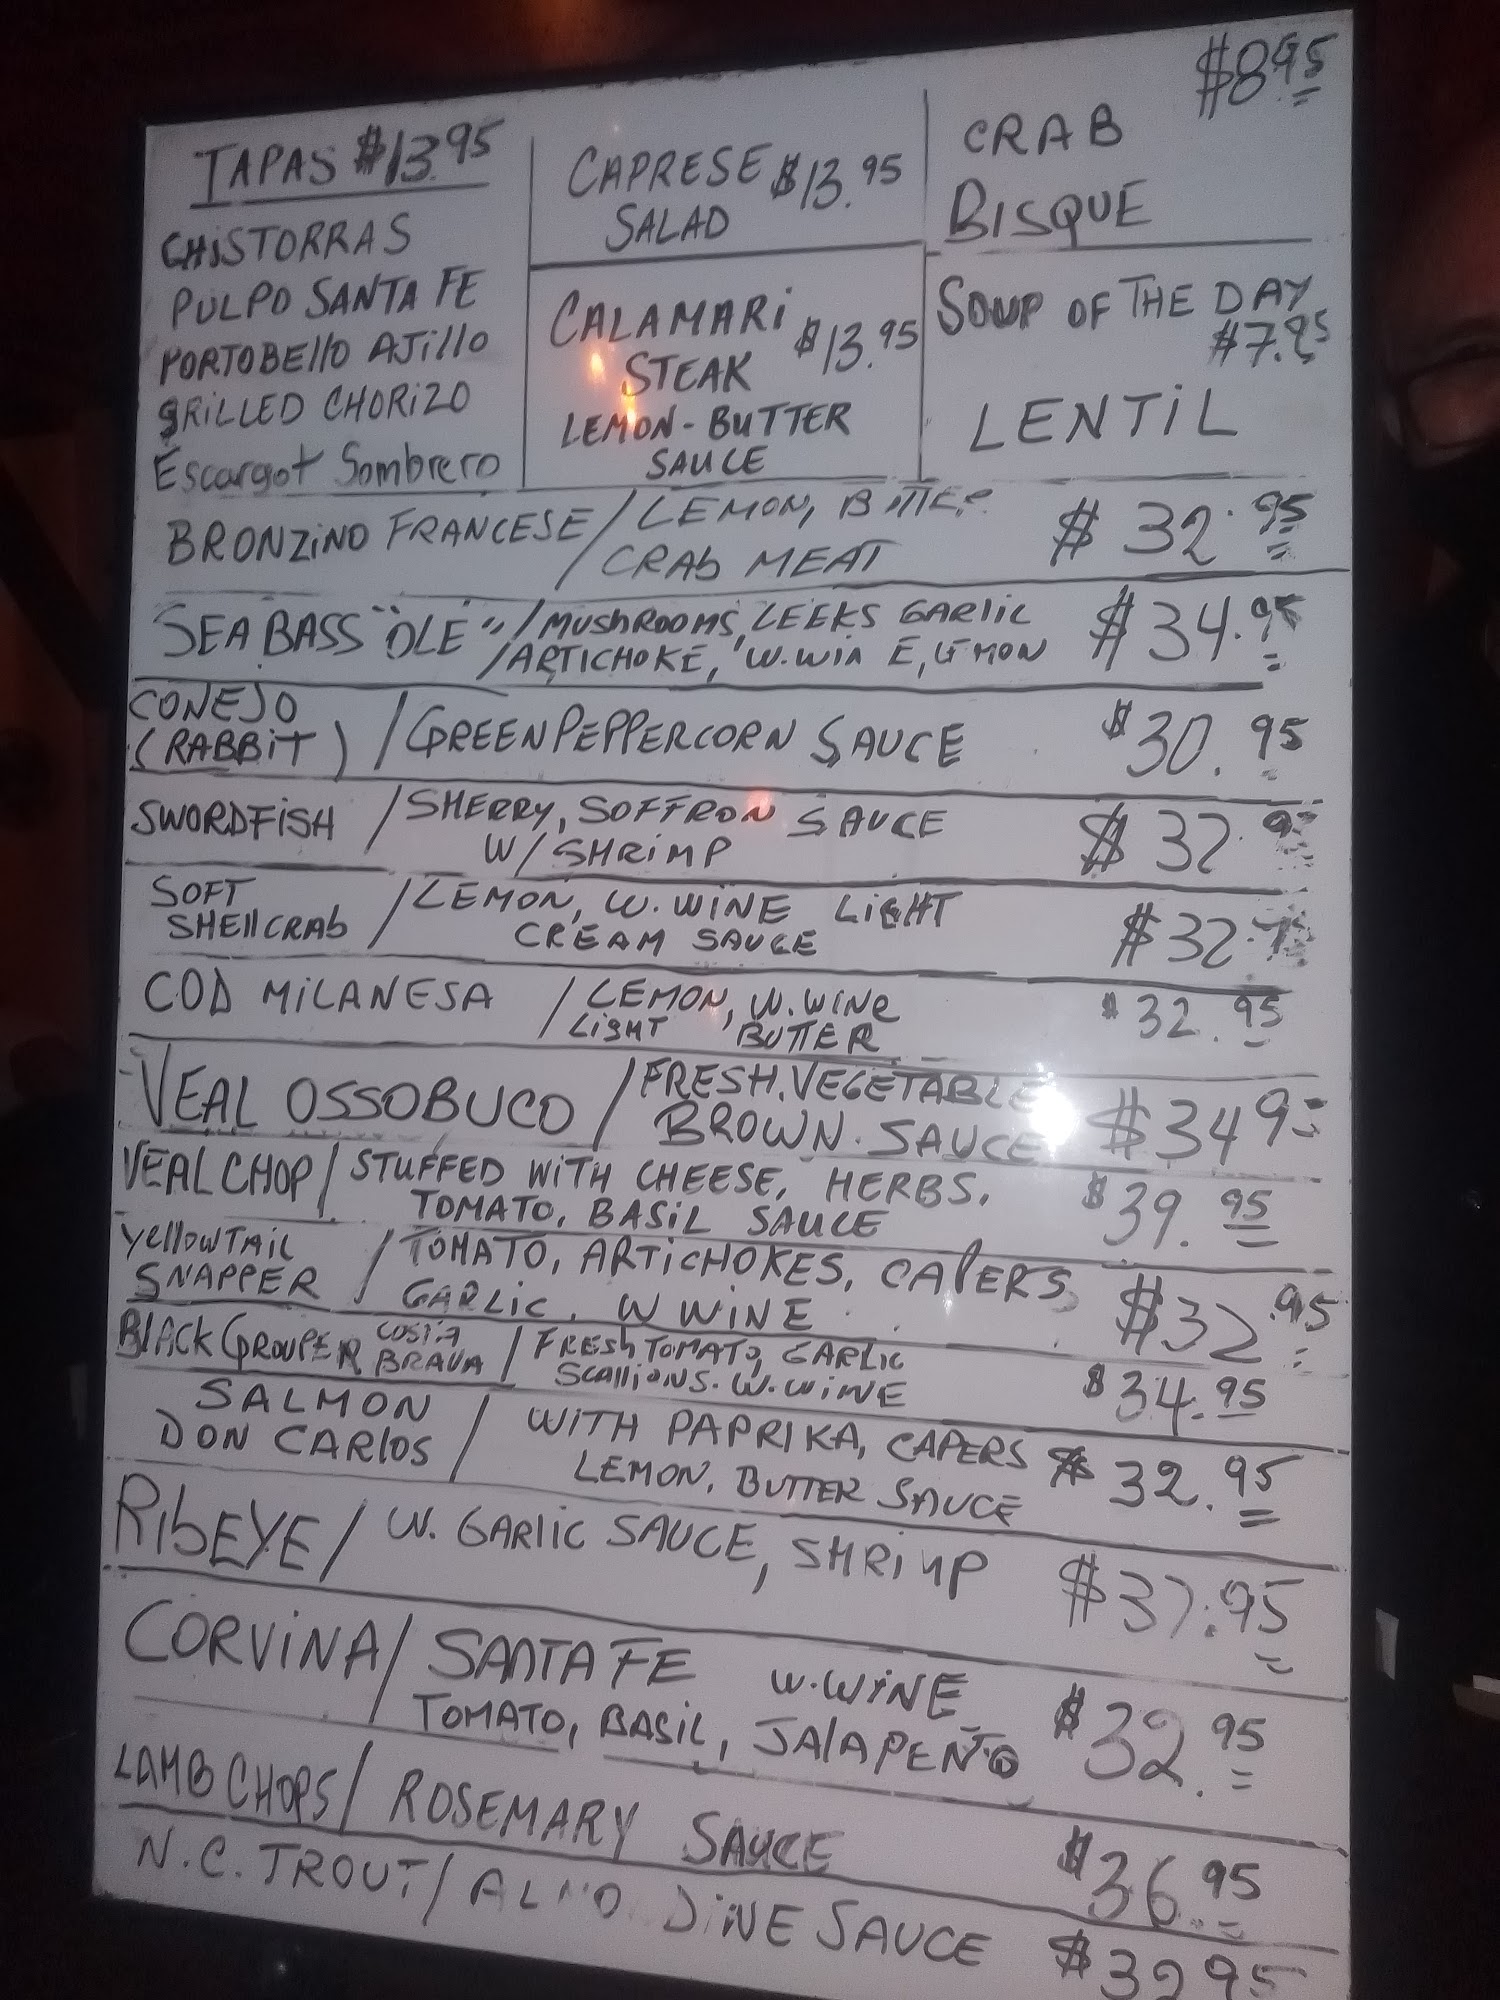 TAPAS $13.95
CHISTORRAS
PULPO SANTA FE
PORTOBELLO AJILLO
GRILLED CHORIZO
Escargot Sombrero
CAPRESE $13.95
SALAD
CALAMARI $13.95
STEAK
LEMON-BUTTER
SAUCE
$8.95
CRAB
BISQUE
SOUP OF THE DAY
$7.95
LENTIL
BRONZINO FRANCESE / LEMON, BUTTER $32.95
CRAB MEAT
SEA BASS "OLE" / MUSHROOMS, LEEKS GARLIC $34.95
/ ARTICHOKE, W.WINE, LEMON
CONEJO
(RABBIT) / GREEN PEPPERCORN SAUCE $30.95
SWORDFISH / SHERRY, SOFFRON SAUCE $32.95
W/ SHRIMP
SOFT / LEMON, W.WINE LIGHT $32.
SHELLCRAB CREAM SAUCE
COD MILANESA / LEMON, W.WINE $32.95
LIGHT BUTTER
VEAL OSSOBUCO / FRESH.VEGETABLE $34 95
BROWN. SAUCE
VEAL CHOP / STUFFED WITH CHEESE, HERBS, $39.95
TOMATO, BASIL SAUCE
YELLOWTAIL / TOMATO, ARTICHOKES, CAPERS, $32.95
SNAPPER GARLIC, W WINE
BLACK GROUPER COSTA / FRESH TOMATO, GARLIC $34.95
BRAVA SCALLIONS. W.WINE
SALMON / WITH PAPRIKA, CAPERS $32.95
DON CARLOS LEMON, BUTTER SAUCE
RIBEYE / W. GARLIC SAUCE, SHRIMP $37.95
CORVINA / SANTA FE W.WINE $32.95
TOMATO, BASIL, JALAPEÑO
LAMB CHOPS / ROSEMARY SAUCE $36.95
N.C. TROUT / DINE SAUCE $32 95